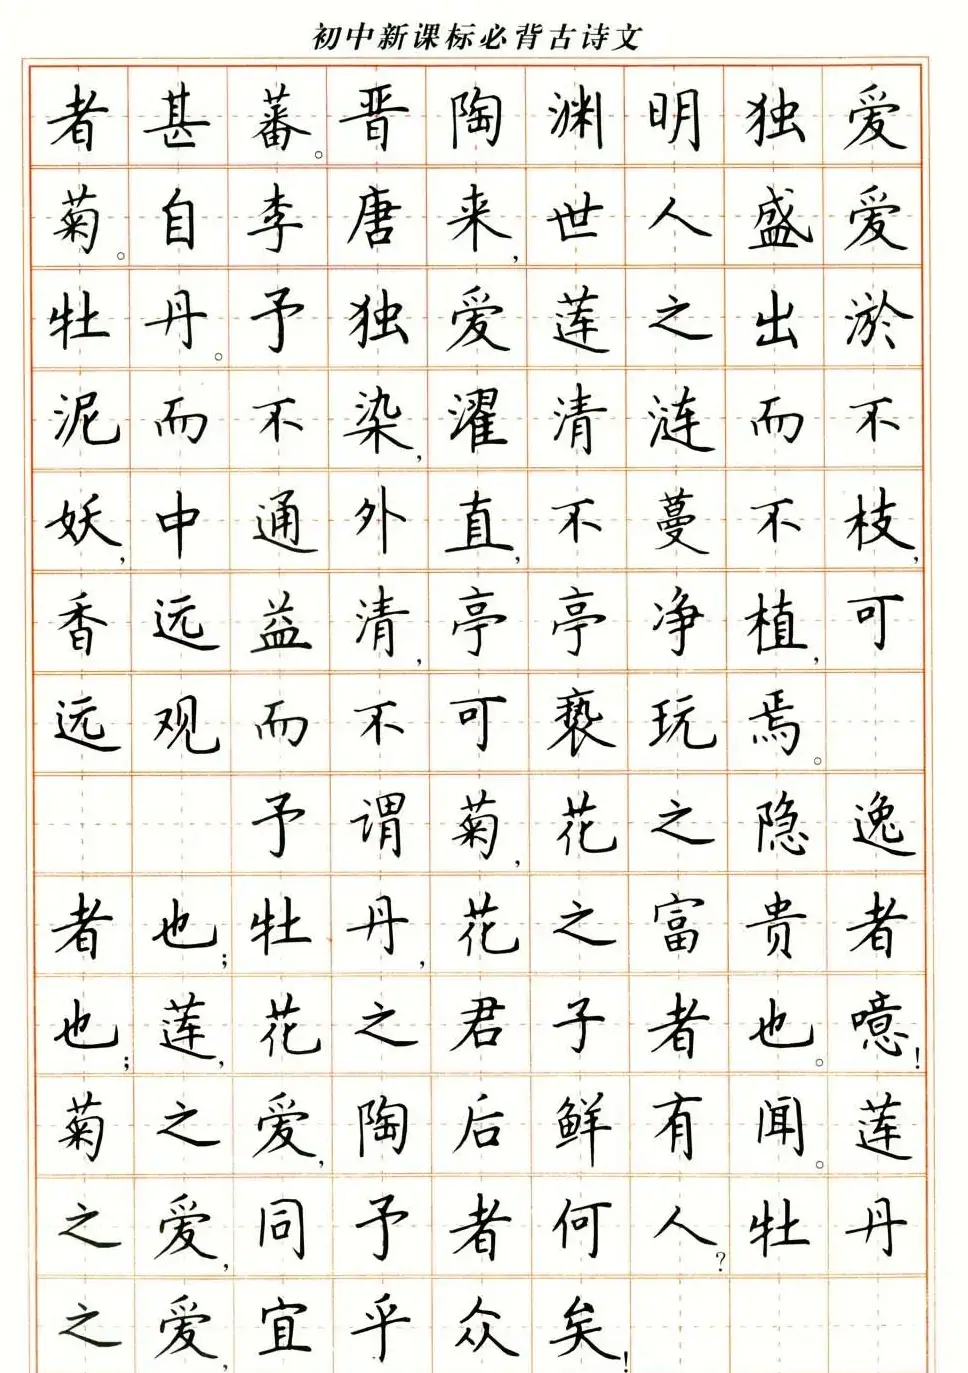 初中新课标必背古诗文
者甚蕃。晋陶渊明独爱
菊。自李唐来,世人盛爱
牡丹。予独爱莲之出淤
泥而不染,濯清涟而不
妖,中通外直,不蔓不枝,
香远益清,亭亭净植,可
远观而不可亵玩焉。
予谓菊,花之隐逸
者也;牡丹,花之富贵者
也;莲,花之君子者也。噫!
菊之爱,陶后鲜有闻。莲
之爱,同予者何人?牡丹
之爱,宜乎众矣!